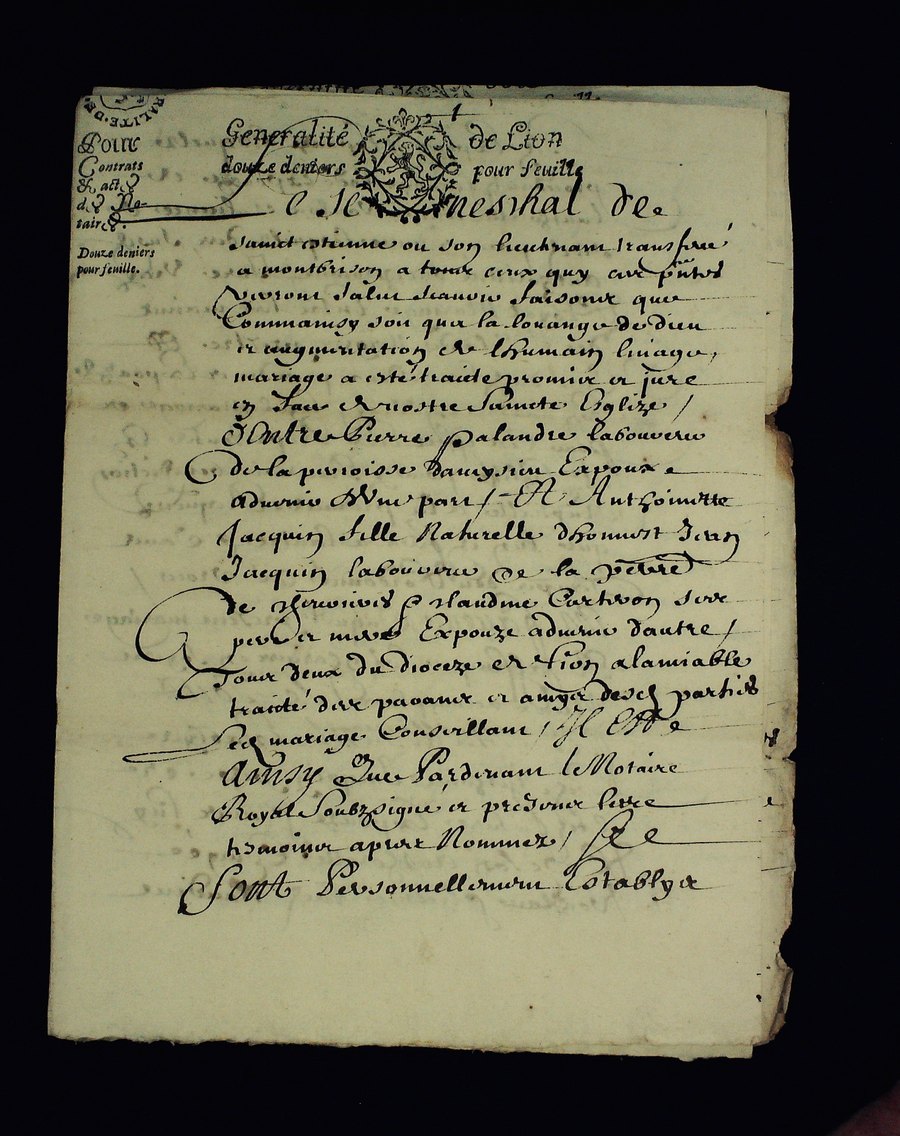 RALITE·DE
Pour
Contrats
& actes
des No-
taires.
Douze deniers
pour feuille.
Generalité de Lion
douze deniers pour feuille
Le Seneschal de
sainct estienne ou son lieutenant transferé
a montbrison a tous ceux quy ces pntes
verront salut scavoir faisons que
Comme ainsy soit que la louange de dieu
et augmentation de lhumain linage,
mariage a esté traicté promis et juré
en face de nostre saincte Eglize /
Entre Pierre palandre laboureur
de la perroisse Expoux
advenir d'Une part / Et Anthoinette
Jacquin fille Naturelle dhonnest Jean
Jacquin laboureur de la perre
de & Claudine ses
pere et mere Expouze advenir dautre /
Tous deux du dioceze de Lion a lamiable
traicté des parans et amys desd parties
led mariage Conseillant / Il Est
ainsy Que Pardevant le Notaire
Royal Soubzsigné et presens les
tesmoins apres Nommez /
Sont Personnellement Establys